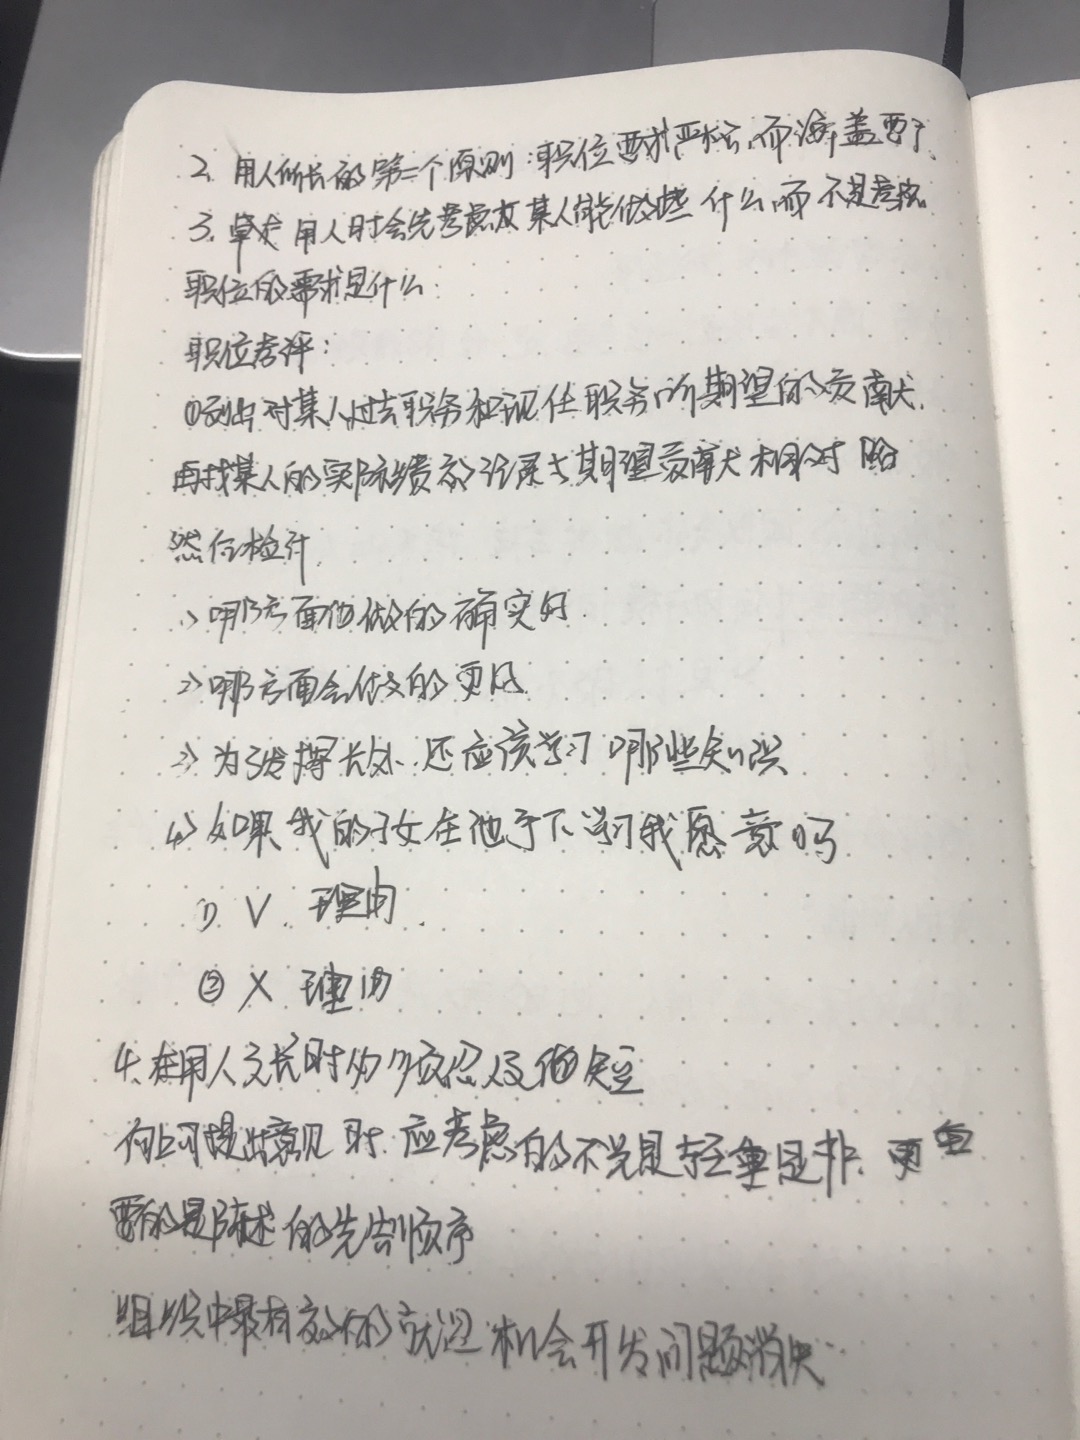 2. 用人所长的第二个原则:职位要求严格,而涵盖要广.
3. 卓越用人时会先考虑某人能做些什么,而不是考虑
职位的需求是什么.
职位考评:
①列出对某人过去职务和现任职务所期望的贡献.
再找某人的实际绩效记录与期望贡献相对照
然后检讨.
1> 哪方面他做的确实好.
2> 哪方面会做的更好.
3> 为了发挥长处.还应该学习哪些知识
4> 如果我的子女在他手下学习我愿意吗
① V. 理由.
② X 理由
4. 在用人之长时必须忍人之短
向上司提出意见时.应考虑的不只是轻重是非.更重
要的是陈述的先后顺序
组织中最有效的 机会开发问题消失.